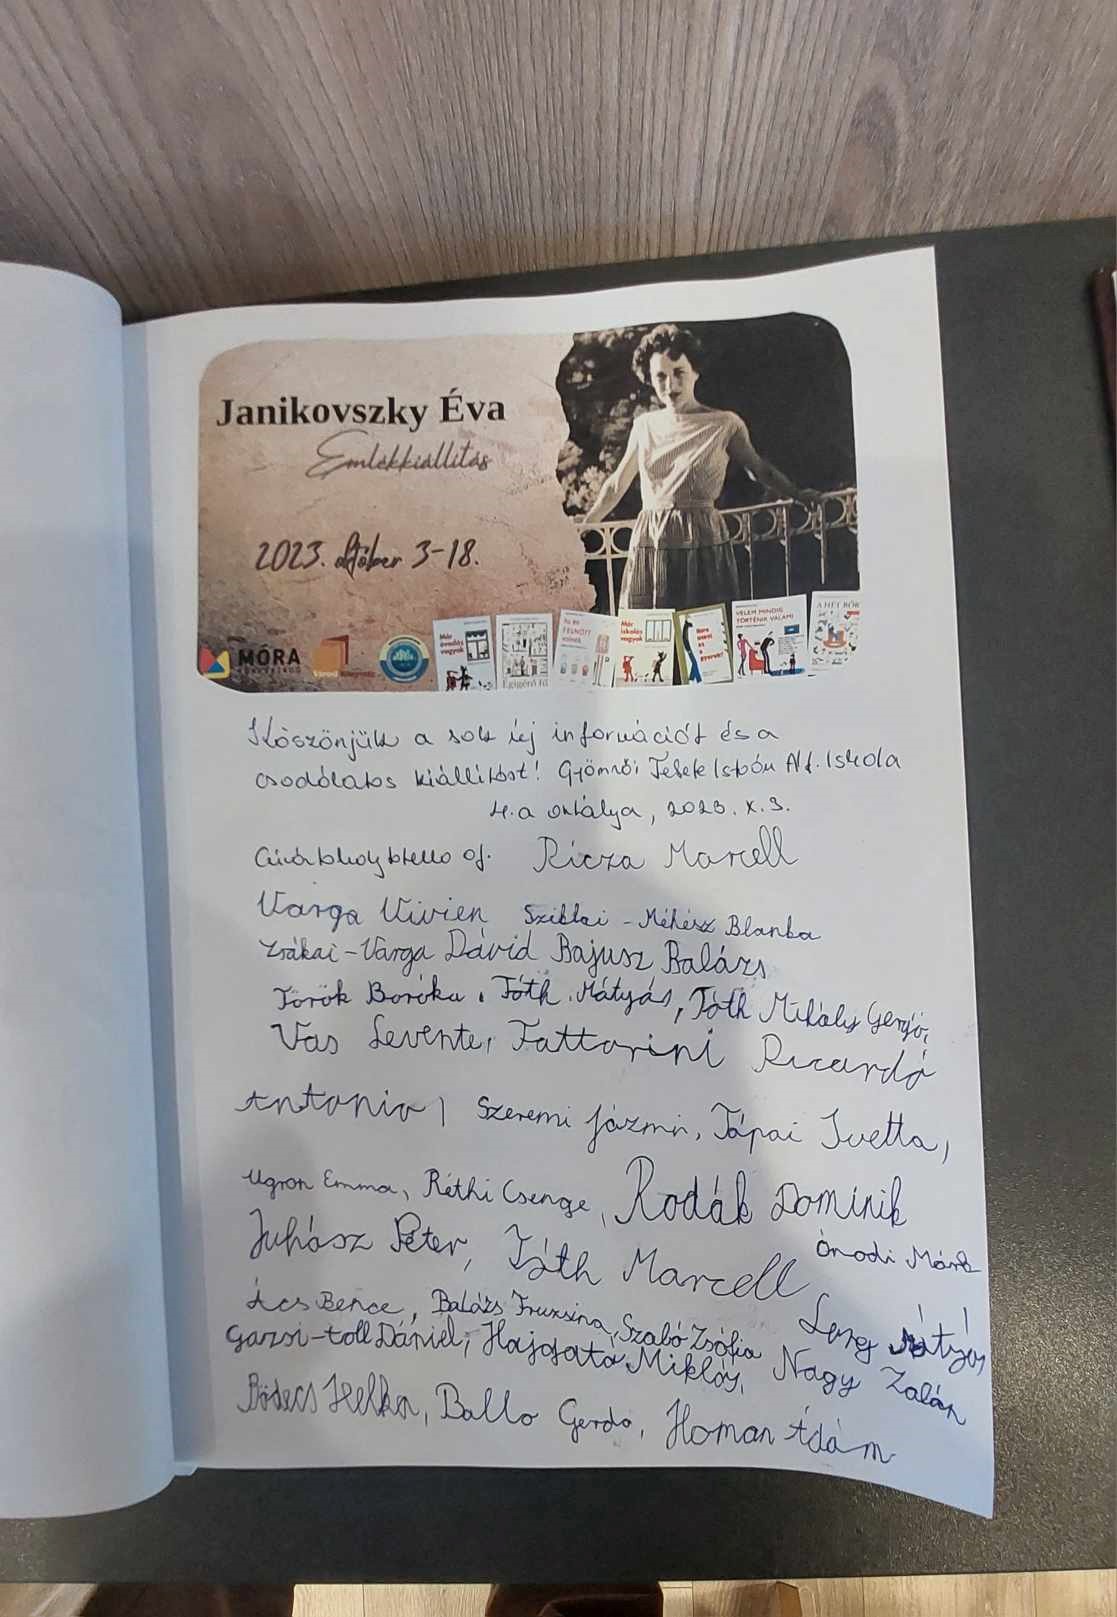 Janikovszky Éva
Emlékkiállítás
2023. október 3-18.
MÓRA
KÖNYVKIADÓ
Városi Könyvtár
Már óvodás vagyok
Égigérő fű
Ha én FELNŐTT volnék
Már iskolás vagyok
VELEM MINDIG TÖRTÉNIK VALAMI
A HÉT BŐR
Köszönjük a sok új információt és a
csodálatos kiállítást! Gyömrői Fekete István Ált. Iskola
4.a osztálya, 2023. X. 3.
Ricza Marcell
Varga Vivien Sziklai-Méhész Blanka
Zsákai-Varga Dávid Bajusz Balázs
Török Boróka, Tóth Mátyás, Tóth Mihály Gergő,
Vas Levente, Fattorini Ricardó
Antonio, Szeremi Jázmin, Tápai Ivetta,
Ugron Emma, Réthi Csenge, Rodák Dominik
Juhász Péter, Tóth Marcell Ónodi Márk
Ács Bence, Balázs Fruzsina, Szabó Zsófia Mátyás
Gazsi-toll Dániel, Hajgató Miklós, Nagy Zalán
Bödecs Helka, Balló Gerda, Homan Ádám